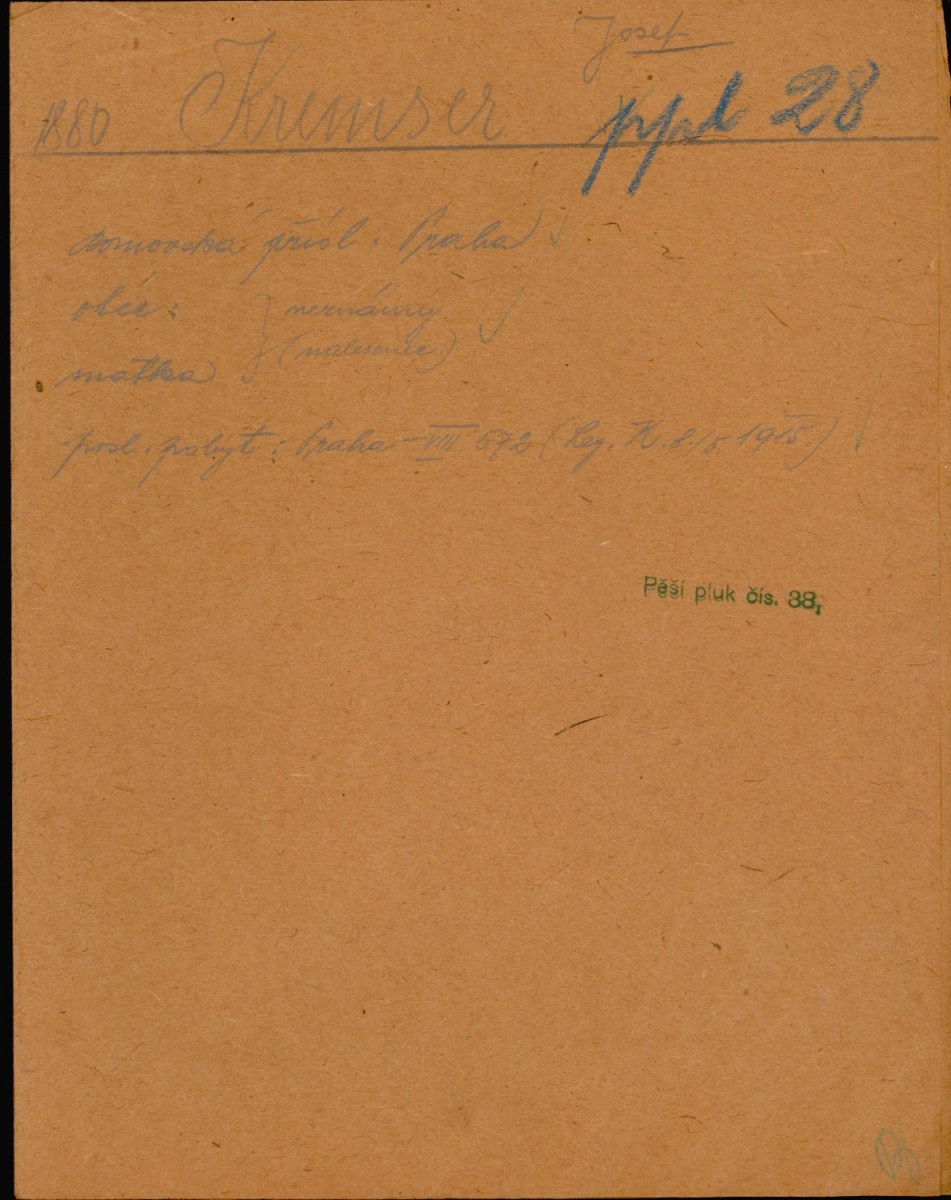 Josef
1880 Kremser ppl 28
domovská přísl. Praha
otec: } neznámý
matka } (nalezenec)
posl. pobyt: Praha VIII 572 (Leg. K. 8./5 1915.)
Pěší pluk čís. 38,